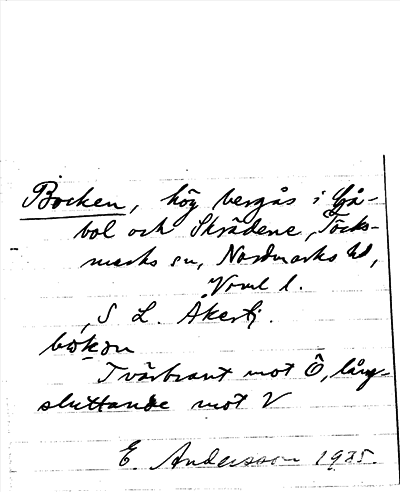 Bocken, hög bergås i Gå-
bol och Skrädene, Töcks-
marks sn, Nordmarks hd,
Vrml l.
S L. Åkerbj.
Tvärbrant mot Ö, lång-
sluttande mot V
E. Andersson 1925.